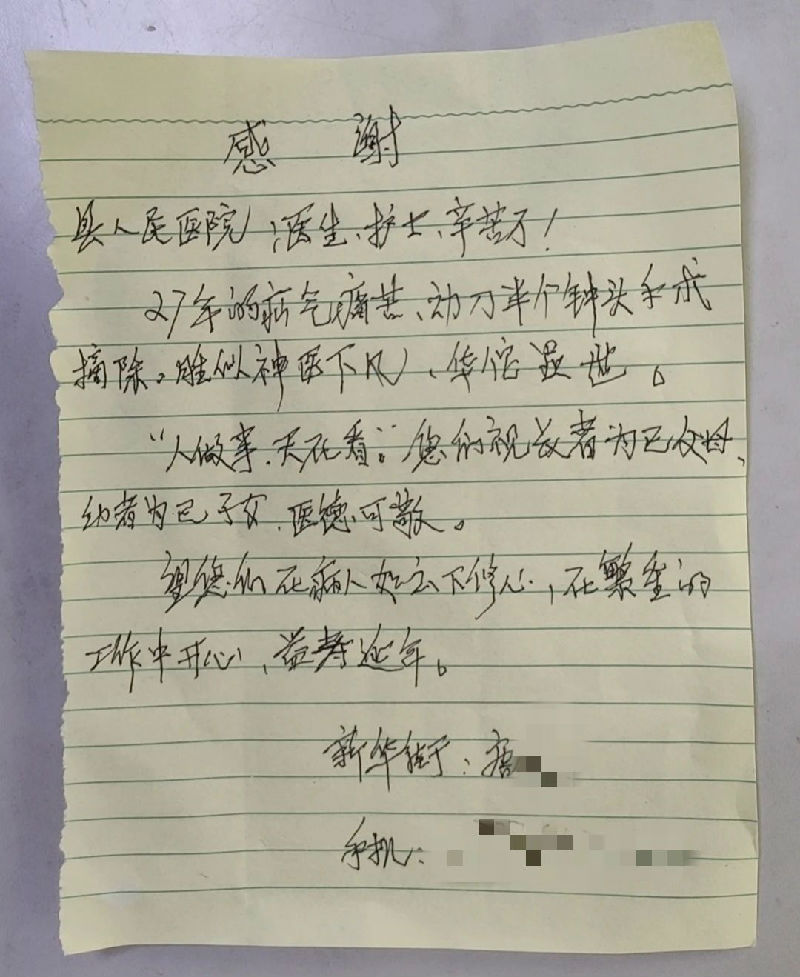 感 谢
县人民医院:医生、护士、辛苦了!
27年的疝气痛苦、动刀半个钟头手术
摘除。雖似神医下凡、华佗显世。
“人做事.天在看。”您们视长者为己父母、
幼者为己子女.医德可敬。
望您们在病人如云下修心,在繁重的
工作中开心、益寿延年。
新华街:唐
手机: